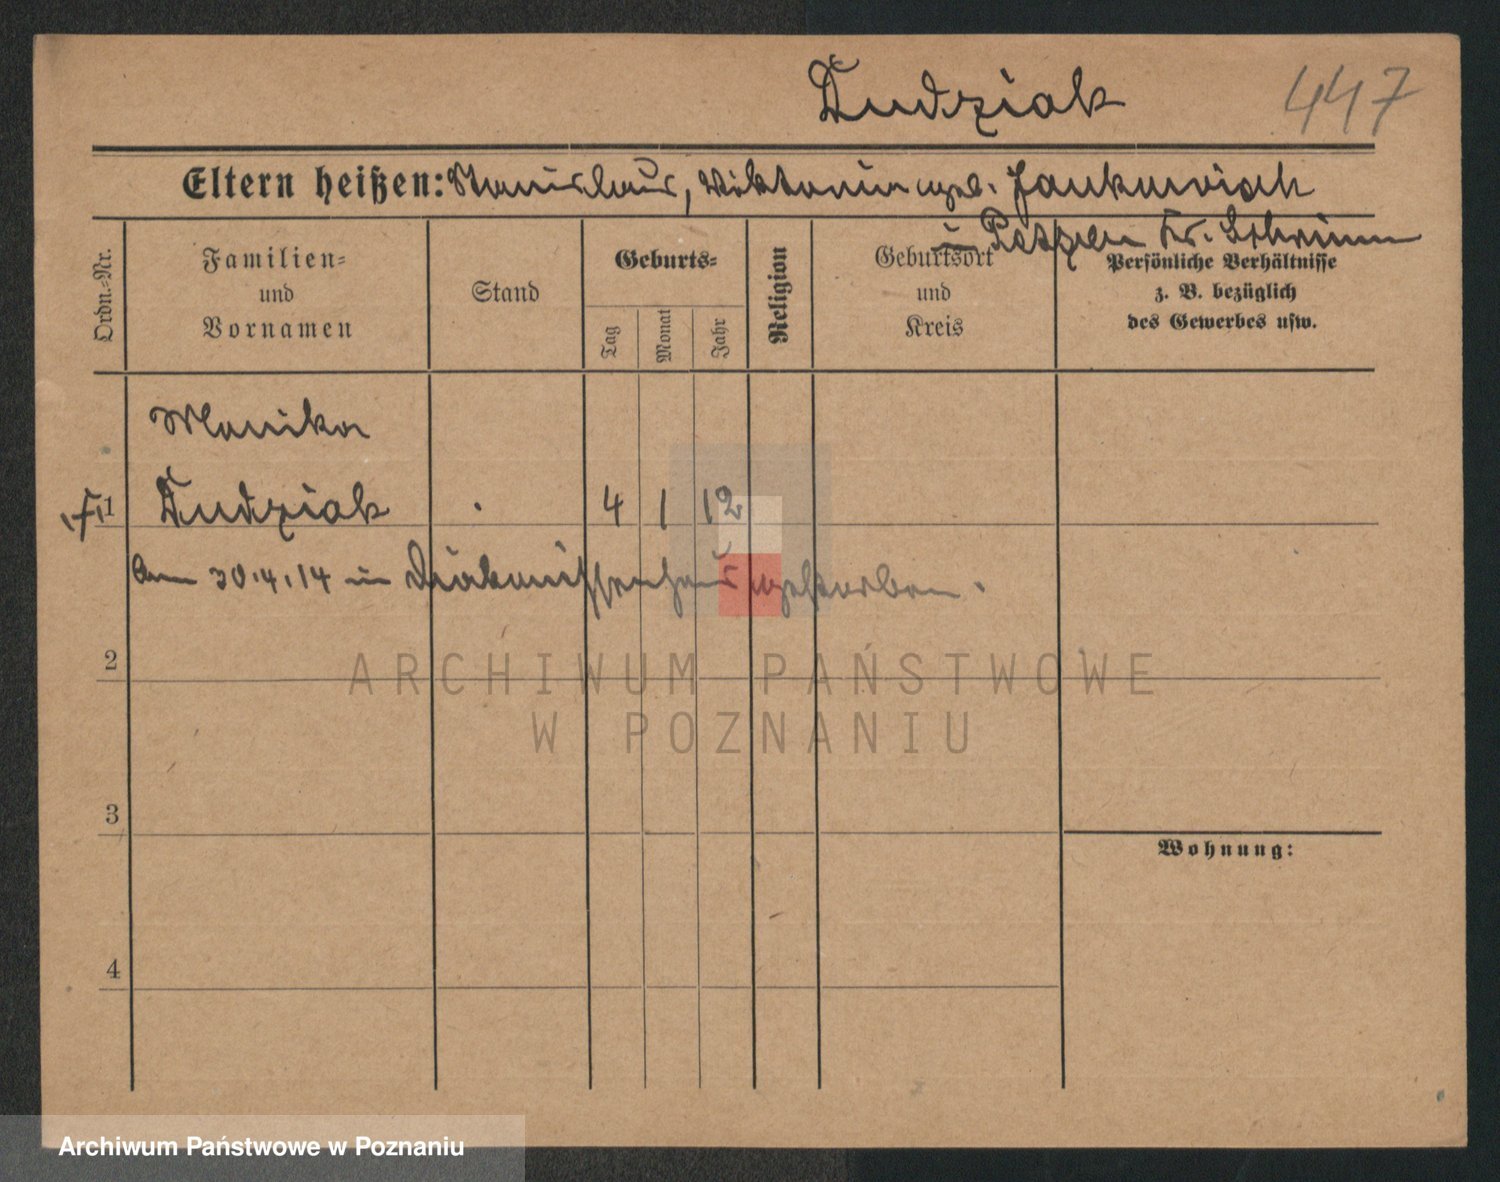 Dudziak 447
Eltern heißen: Stanislaus, Viktoria geb. Jankowiak
in Kr. Schrimm
Ordn.-Nr.
Familien-
und
Vornamen
Stand
Geburts-
Tag
Monat
Jahr
Religion
Geburtsort
und
Kreis
Persönliche Verhältnisse
z. B. bezüglich
des Gewerbes usw.
Monika
1 Dudziak 4 1 12
Am 30.4.14 im Diakonissenhaus gestorben.
2
ARCHIWUM PAŃSTWOWE
W POZNANIU
3
Wohnung:
4
Archiwum Państwowe w Poznaniu